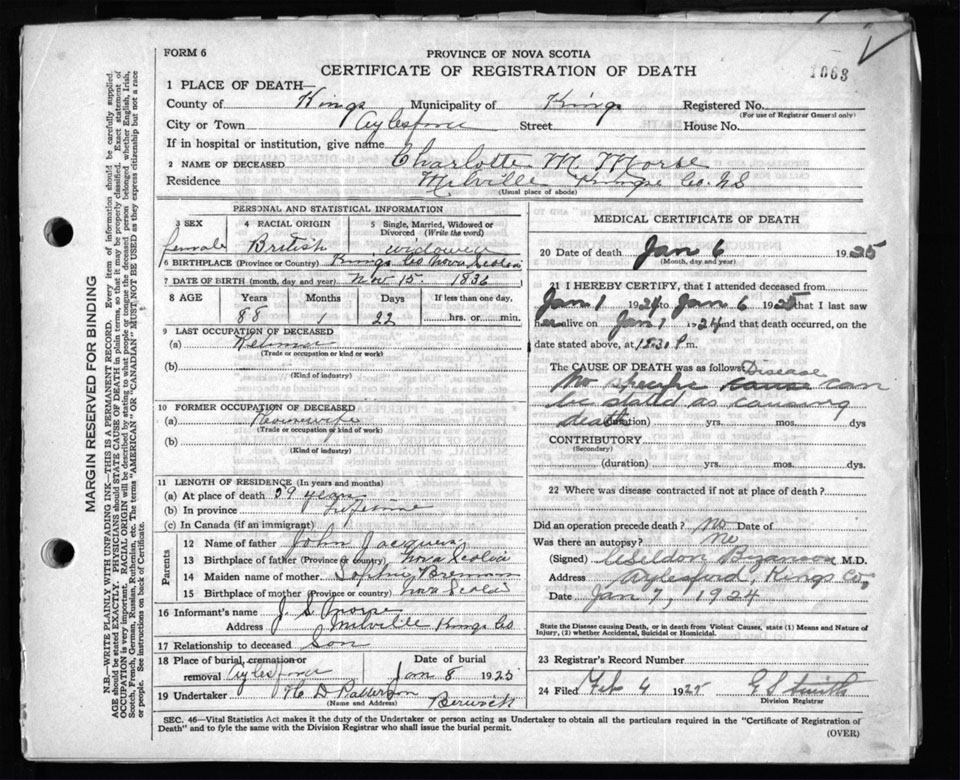 FORM 6
PROVINCE OF NOVA SCOTIA
CERTIFICATE OF REGISTRATION OF DEATH
1063
1 PLACE OF DEATH—
County of Kings Municipality of Kings Registered No.
(For use of Registrar General only)
City or Town Aylesford Street House No.
If in hospital or institution, give name
2 NAME OF DECEASED Charlotte M Morse
Residence Milville Kings Co. N.S
(Usual place of abode)
PERSONAL AND STATISTICAL INFORMATION
3 SEX 4 RACIAL ORIGIN 5 Single, Married, Widowed or Divorced (Write the word)
female British
6 BIRTHPLACE (Province or Country) Kings Co Nova Scotia
7 DATE OF BIRTH (month, day and year) Nov 15. 1836
8 AGE Years Months Days If less than one day,
88 1 22 hrs. or min.
9 LAST OCCUPATION OF DECEASED
(a)
(Trade or occupation or kind or work)
(b)
(Kind of industry)
10 FORMER OCCUPATION OF DECEASED
(a) Housewife
(Trade or occupation or kind of work)
(b)
(Kind of industry)
11 LENGTH OF RESIDENCE (In years and months)
(a) At place of death 59 years
(b) In province Lifetime
(c) In Canada (if an immigrant)
Parents
12 Name of father John Jacques
13 Birthplace of father (Province or country) Nova Scotia
14 Maiden name of mother
15 Birthplace of mother (Province or country) Nova Scotia
16 Informant's name J. S.
Address Milville Kings Co
17 Relationship to deceased Son
18 Place of burial, cremation or removal Aylesford Date of burial Jan 8 1925
19 Undertaker N D Patterson Berwick
(Name and Address)
MEDICAL CERTIFICATE OF DEATH
20 Date of death Jan 6 1925
(Month, day and year)
21 I HEREBY CERTIFY, that I attended deceased from
Jan 1 1924 to Jan 6 1925 that I last saw
her alive on Jan 1 1924 and that death occurred, on
date stated above, at 12.30 P.m.
The CAUSE OF DEATH was as follows: Disease
No specific cause can
be stated as causing
death (duration) yrs. mos. dys
CONTRIBUTORY
(Secondary)
(duration) yrs. mos. dys.
22 Where was disease contracted if not at place of death?
Did an operation precede death? no Date of
Was there an autopsy? no
(Signed) M.D.
Address Aylesford, Kings Co,
Date Jan 7, 1924
State the Disease causing Death, or in death from Violent Causes, state (1) Means and Nature of
Injury, (2) whether Accidental, Suicidal or Homicidal.
23 Registrar's Record Number
24 Filed Feb 4 1925 G S Smith
Division Registrar
SEC. 46—Vital Statistics Act makes it the duty of the Undertaker or person acting as Undertaker to obtain all the particulars required in the "Certificate of Registration of
Death" and to fyle the same with the Division Registrar who shall issue the burial permit.
(OVER)
MARGIN RESERVED FOR BINDING
N.B.—WRITE PLAINLY WITH UNFADING INK—THIS IS A PERMANENT RECORD. Every item of information should be carefully supplied.
AGE should be stated EXACTLY. PHYSICIANS should STATE CAUSE OF DEATH in plain terms, so that it may be properly classified. Exact statement of
OCCUPATION is very important. RACIAL ORIGIN will be described by stating to what people or tongue the deceased person belonged whether English, Irish,
Scotch, French, German, Russian, Ruthenian, etc. The terms "AMERICAN" OR "CANADIAN" MUST NOT BE USED as they express citizenship but not a race
or people. See instructions on back of Certificate.